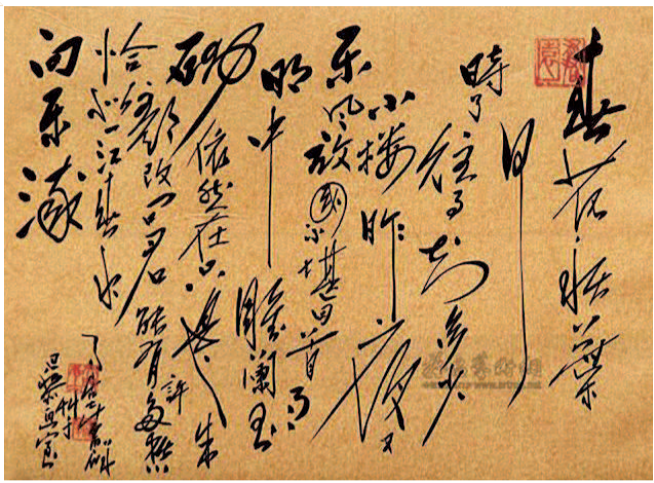 春花秋葉
何
時了
往事知多少
小楼昨夜又
东风故國不堪回首月
明中雕蘭玉
砌依然在只是朱
颜改问君能有許多愁
恰似一江春水
向东流